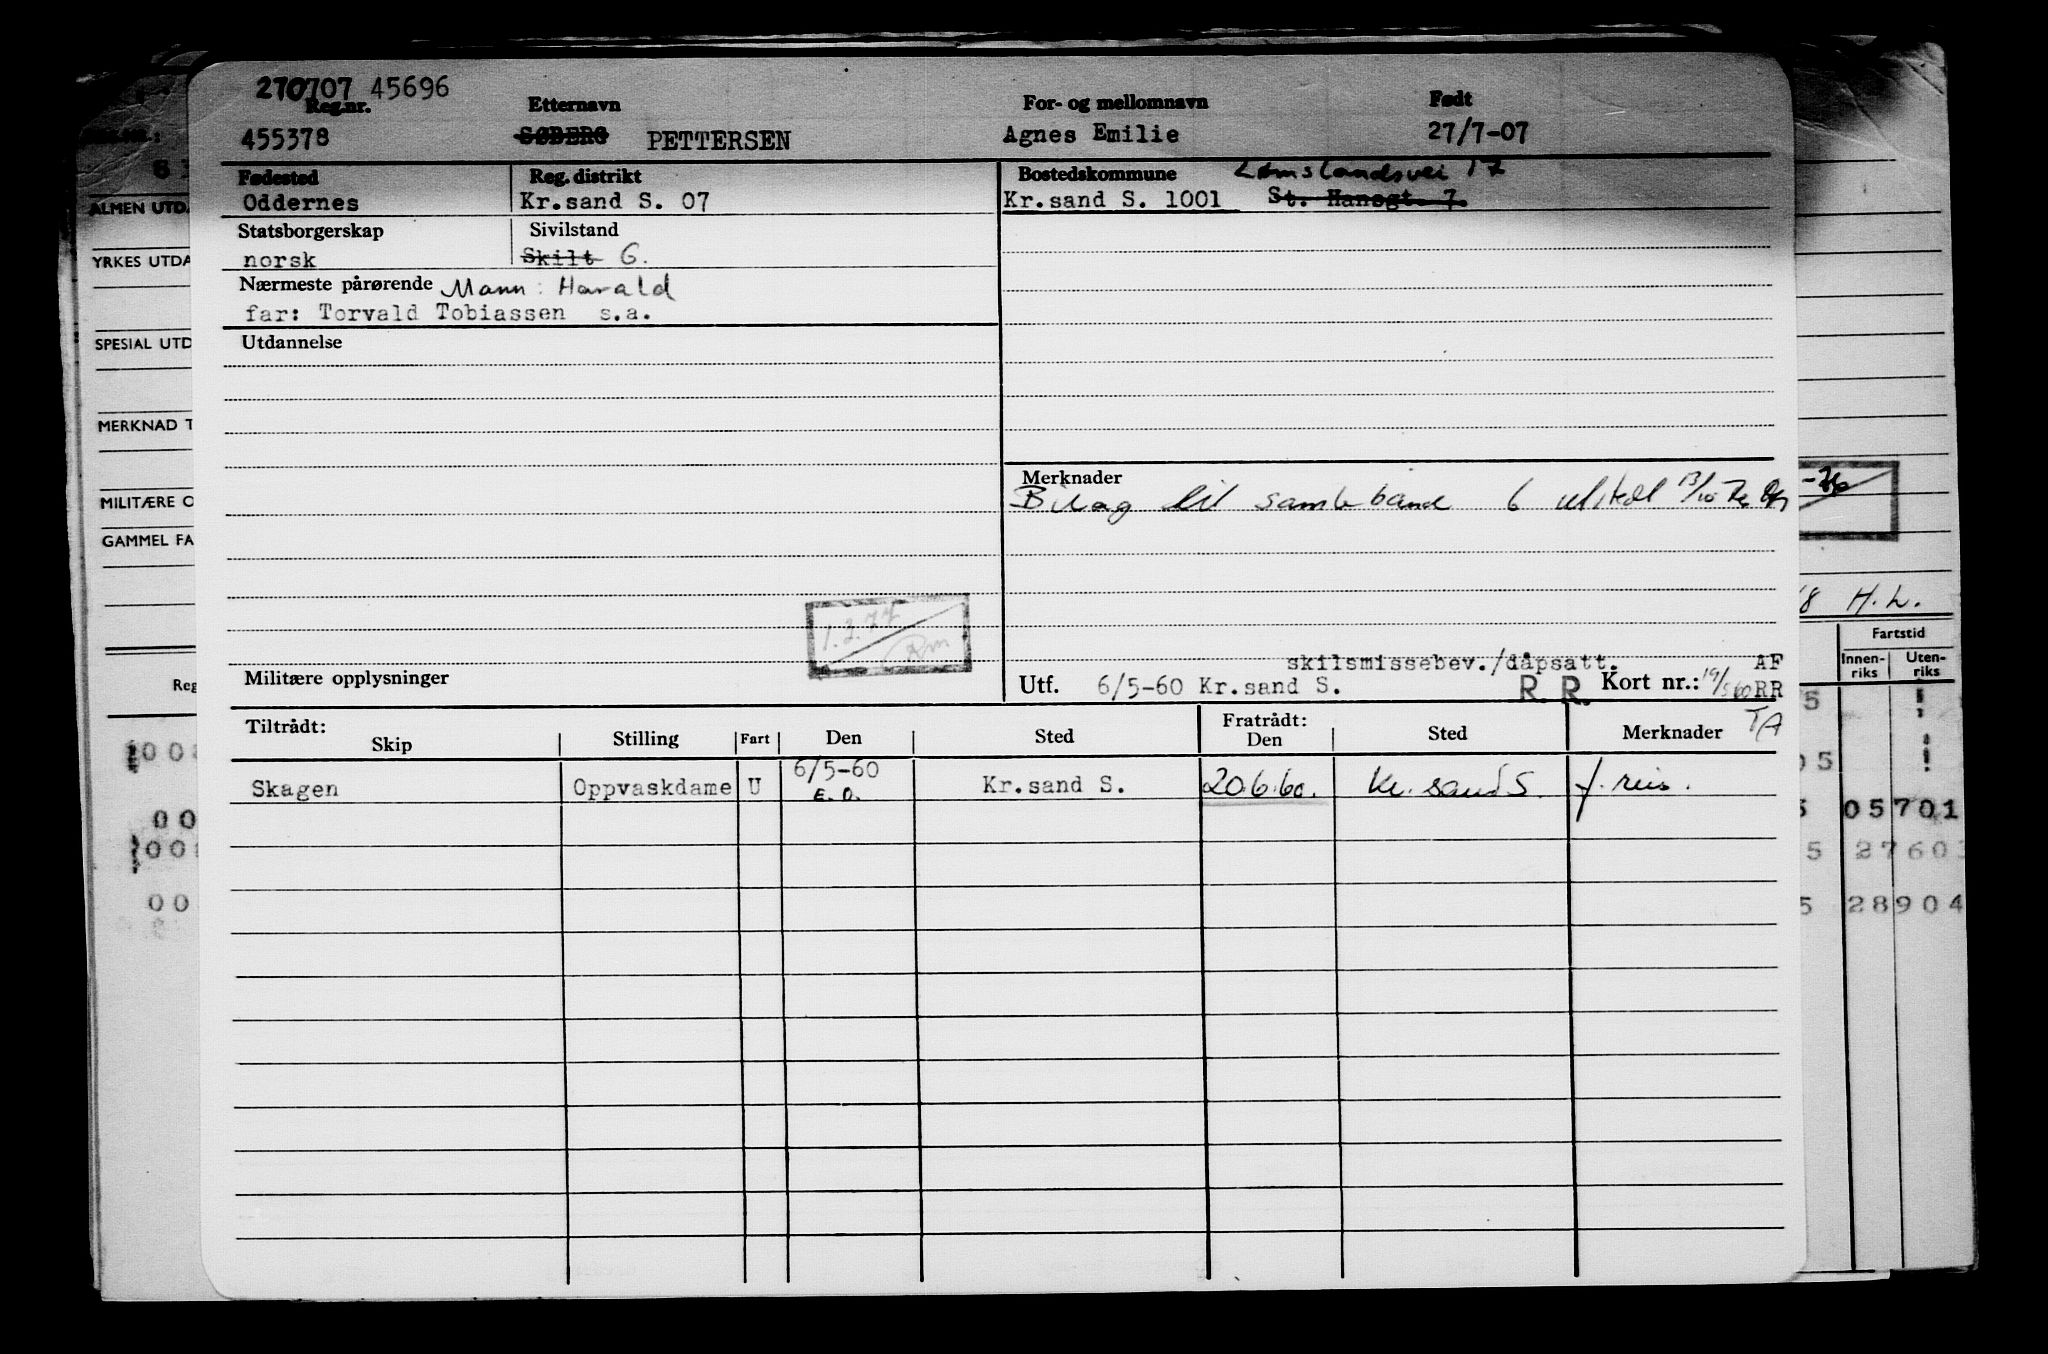 270707 45696
Reg.nr. Etternavn For- og mellomnavn Født
455378 SØBERG PETTERSEN Agnes Emilie 27/7-07
Fødested Reg. distrikt Bostedskommune
Oddernes Kr.sand S. 07 Kr.sand S. 1001 St. Hansgt. 7.
Statsborgerskap Sivilstand
norsk Skilt G.
Nærmeste pårørende Mann: Harald
far: Torvald Tobiassen s.a.
Utdannelse
Merknader
Bilag til sambeband 6 utstedt
1.3.77
Rm
Militære opplysninger
skilsmissebev./dåpsatt. AF
Utf. 6/5-60 Kr.sand S. R. R. Kort nr.: 19/5 60 RR
TA
Tiltrådt: Fratrådt:
Skip Stilling Fart Den Sted Den Sted Merknader
Skagen Oppvaskdame U 6/5-60 Kr.sand S. 20.6.60. Kr. sand S. f. reis.
E.O.
ALMEN UTDA
YRKES UTDA
SPESIAL UTD
MERKNAD T
MILITÆRE O
GAMMEL FA
Reg
008
00
008
00
8 H.L.
Fartstid
Innen-riks Uten-riks
5
05
05701
5 27603
5 28904